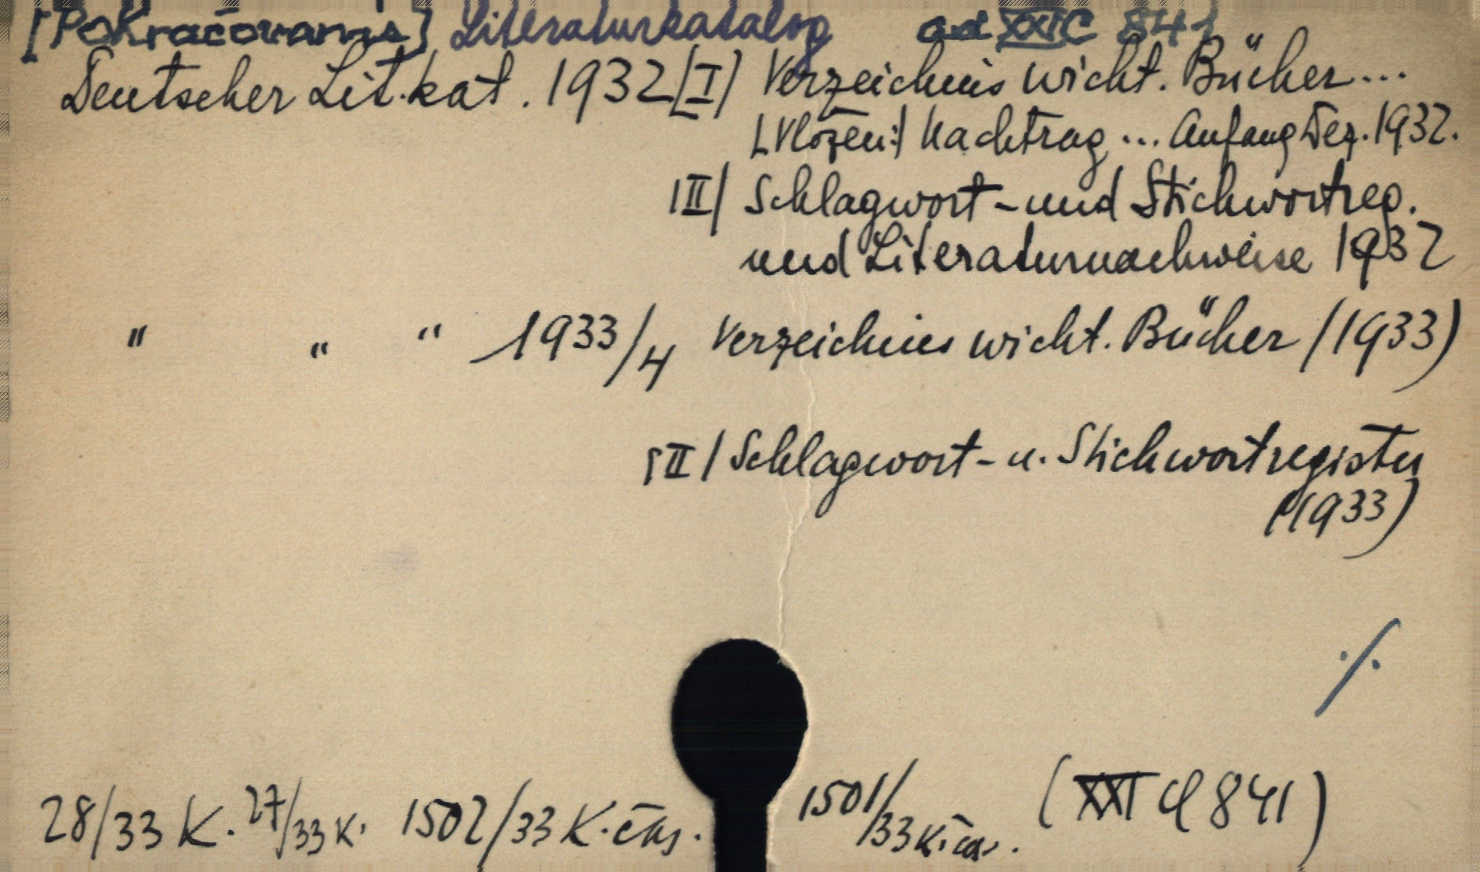 [Pokračovanie] Literaturkatalog ad XXI C 841
Deutscher Lit.kat. 1932 [I] Verzeichnis wicht. Bücher...
[Vložen:] Nachtrag ... Anfang Dez. 1932.
[II] Schlagwort- und Stichwortreg.
und Literaturnachweise 1932
" " " 1933/4 Verzeichnis wicht. Bücher (1933)
[II] Schlagwort- u. Stichwortregister
(1933)
./.
28/33 K. 27/33 K. 1502/33 K. čas. 1501/33 K. čas. (XXI C 841)